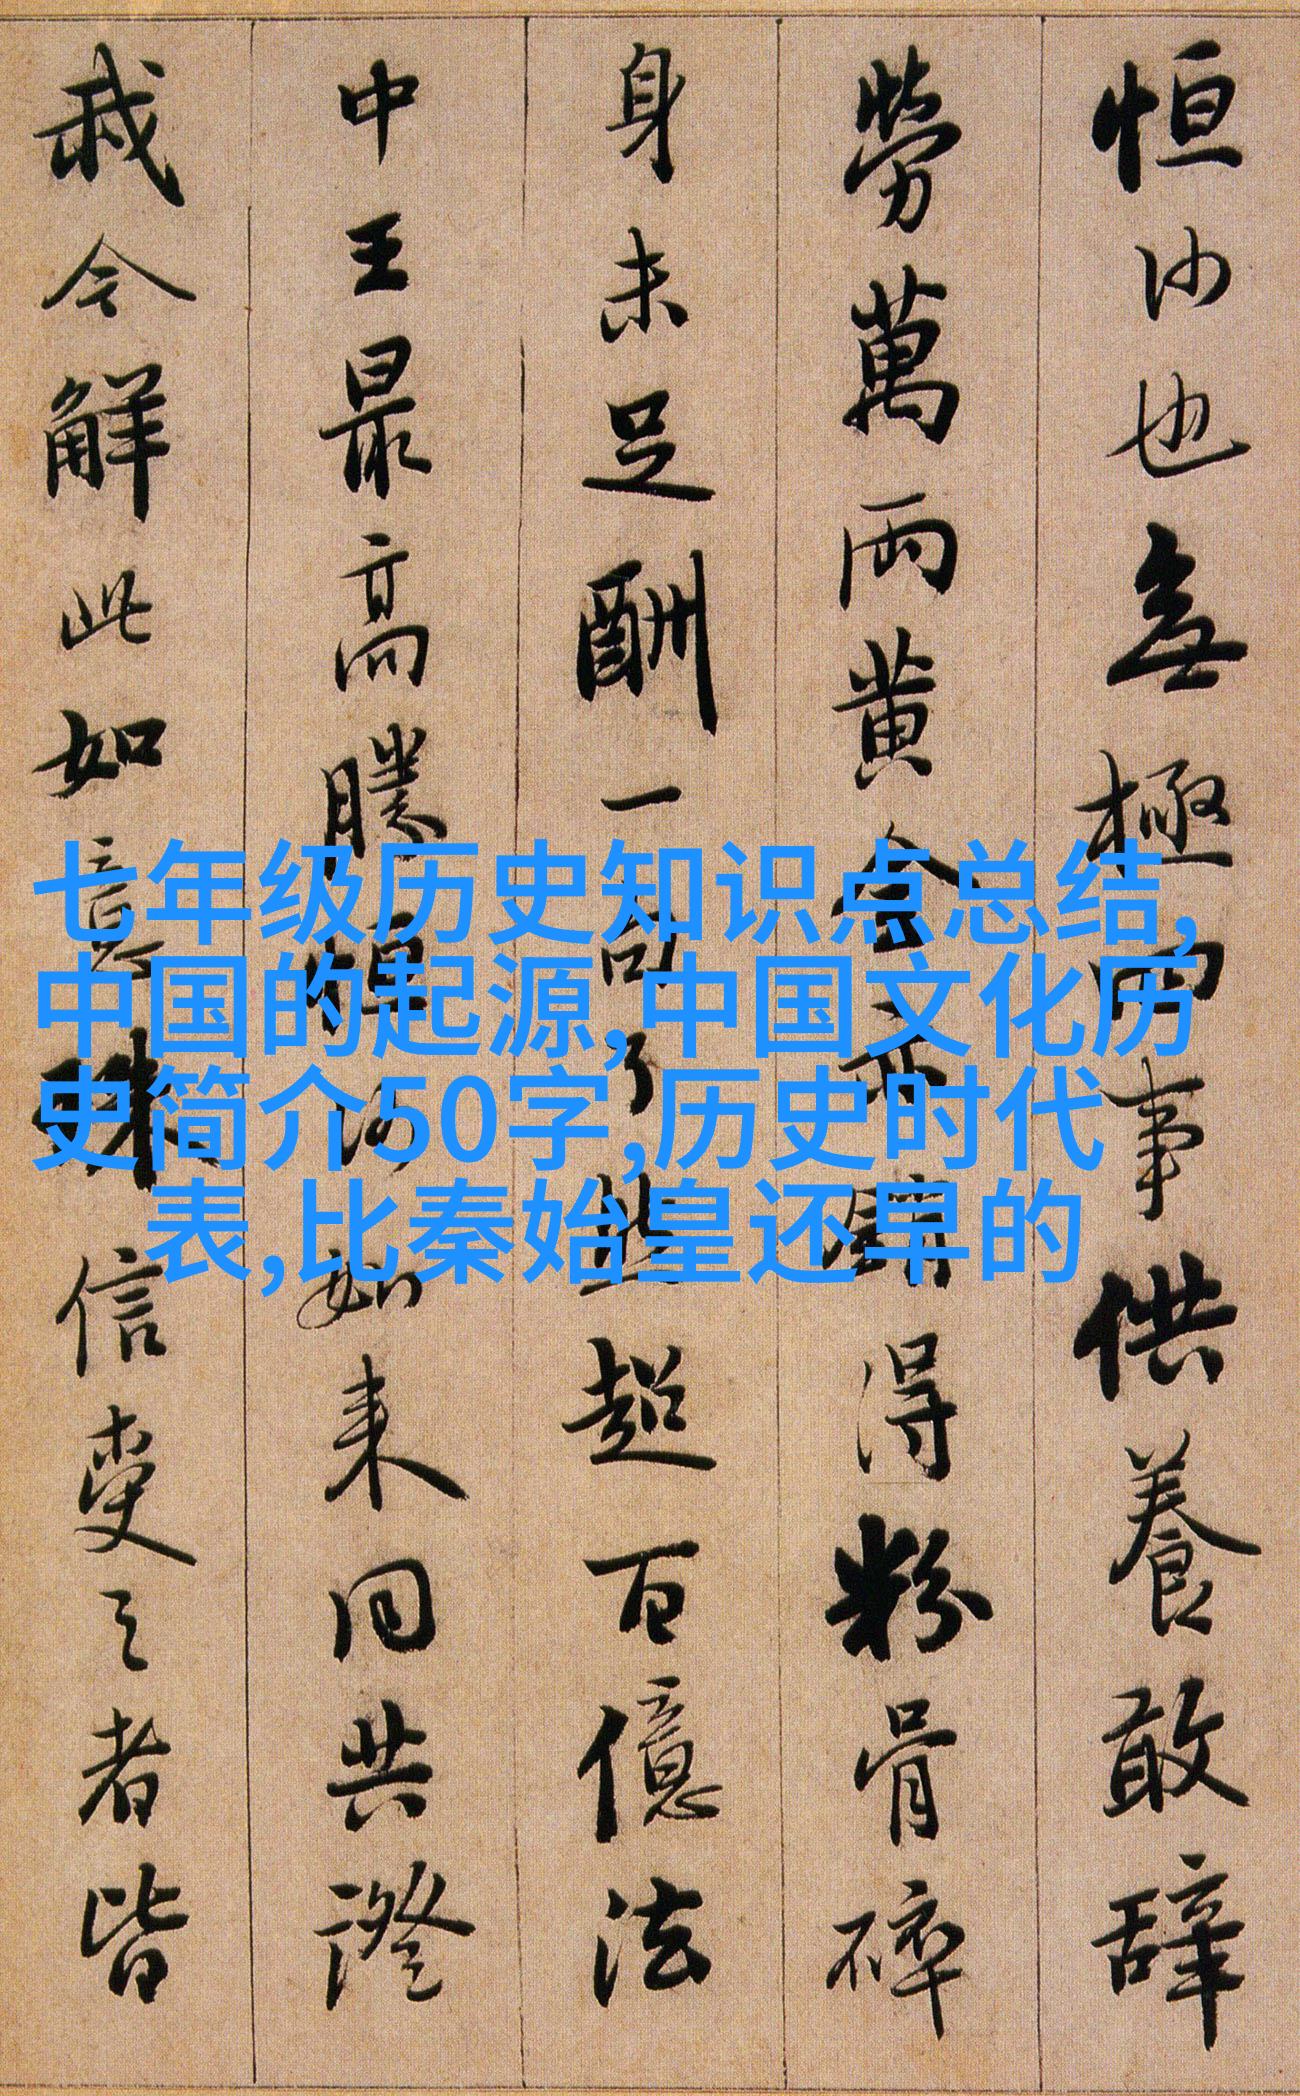 恒沙也無極四事供養敢辭
勞萬兩黄金亦銷得粉骨碎
身未足酬一句了然超百億法
中王最高勝恒沙如来同共證
我今解此如意珠信受之者皆
七年级历史知识点总结,
中国的起源,中国文化历
史简介50字,历史时代
表,比秦始皇还早的